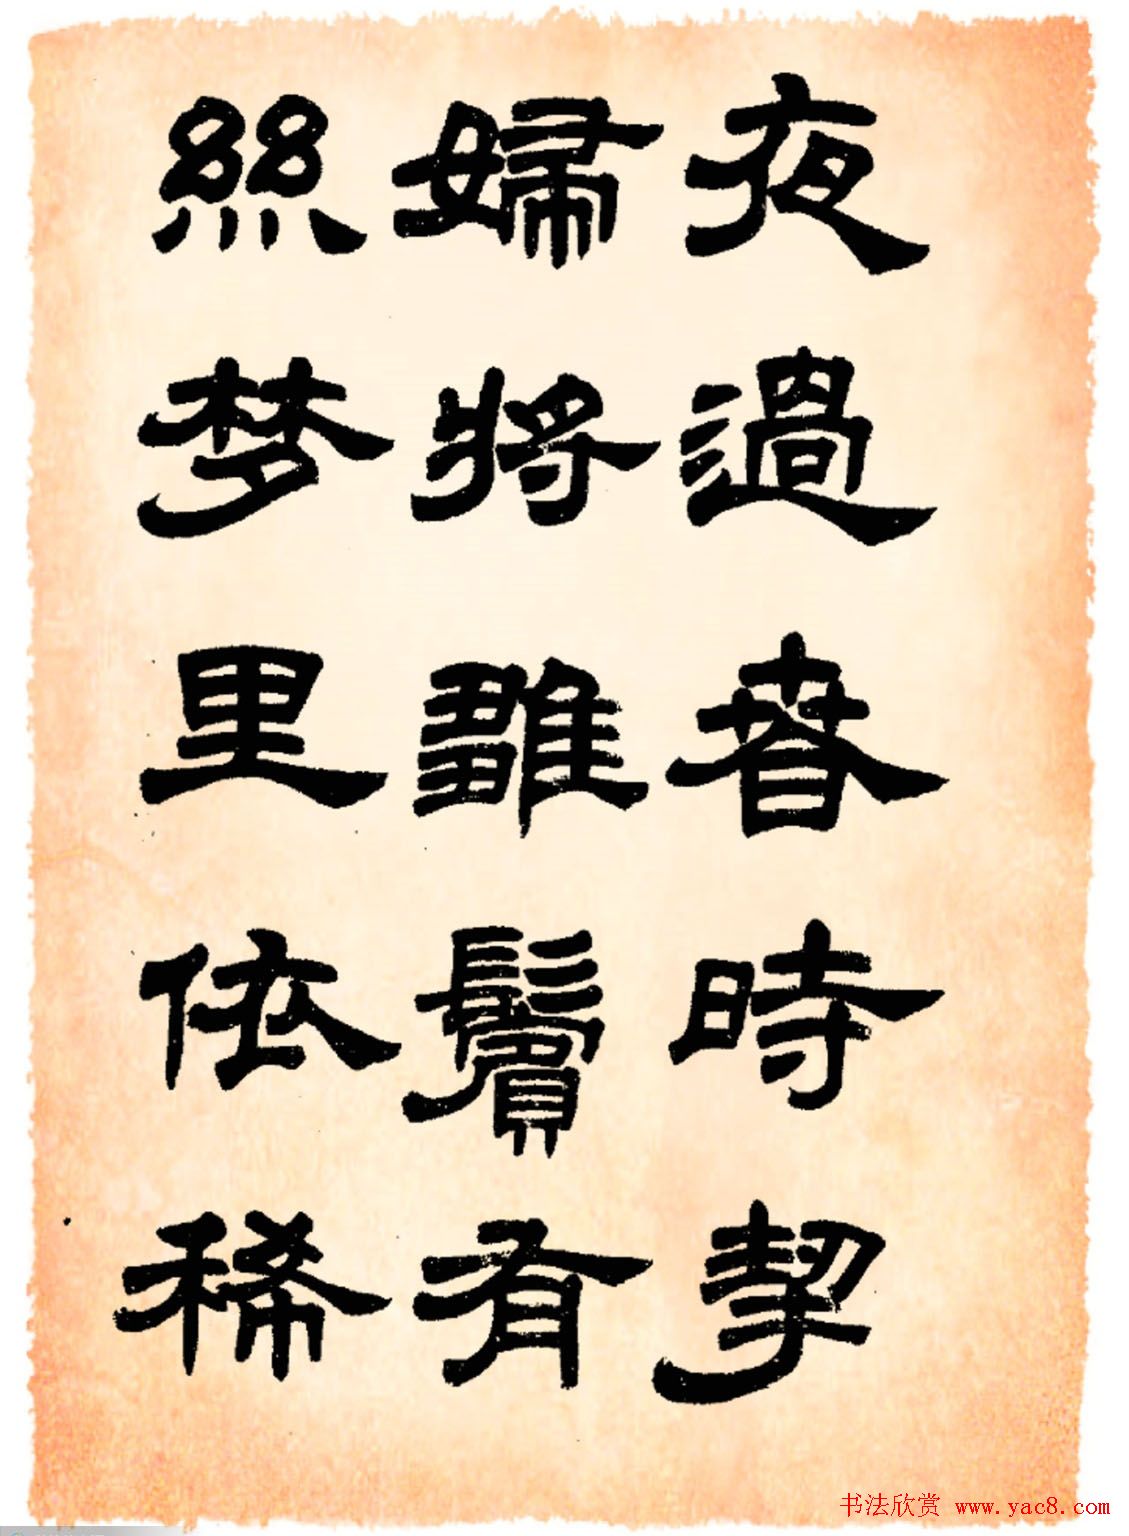 夜過春時挈
婦將雛鬢有
絲梦里依稀
书法欣赏 www.yac8.com